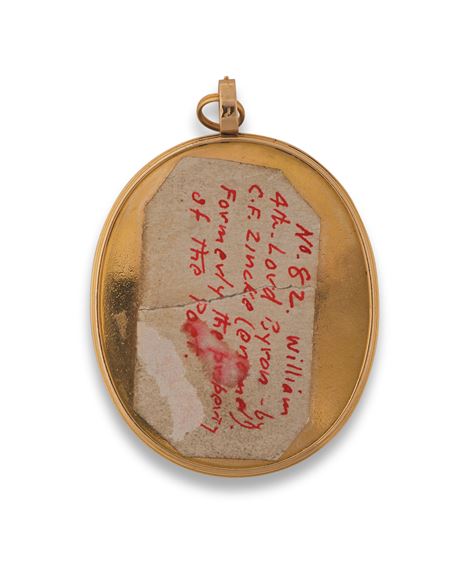 No. 82. William
4th. Lord Byron - by
C. F. Zincke (enamel).
Formerly the property
of the